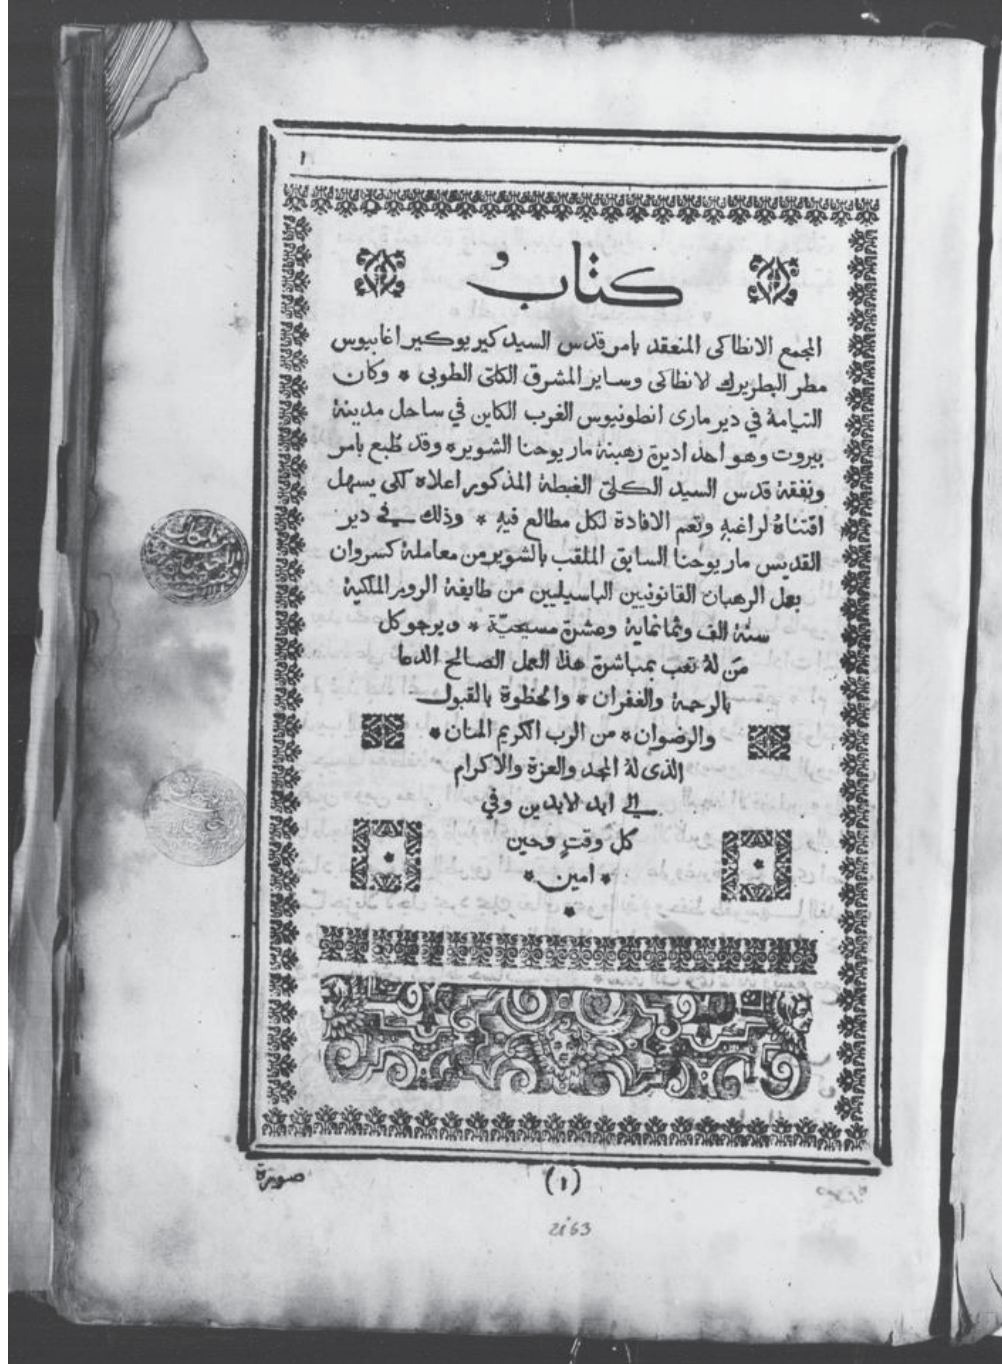 ١
كتاب
المجمع الانطاكى المنعقد بامر قدس السيد كيريوكير اغابيوس
مطر البطريرك لانطاكى وساير المشرق الكلى الطوبى * وكان
التيامهُ في دير مارى انطونيوس الغرب الكاين في ساحل مدينة
بيروت وهو احد اديرة رهبنة مار يوحنا الشوير * وقد طُبع بامر
ونفقة قدس السيد الكلى الغبطة المذكور اعلاه لكى يسهل
اقتناهُ لراغبهِ وتعم الافادة لكل مطالع فيهِ * وذلك في دير
القديس مار يوحنا السابق الملقب بالشوير من معاملة كسروان
بعمل الرهبان القانونيين الباسيليين من طايفة الروم الملكية
سنة الف وثمانماية وعشرة مسيحيّة * ويرجو كل
مَن لهُ تعب بمباشرة هذا العمل الصالح الدعا
بالرحمة والغفران * والحظوة بالقبول
والرضوان * من الرب الكريم المنان *
الذى لهُ المجد والعزة والاكرام
الى ابد لابدين وفي
كل وقتٍ وحين
* امين *
*
صورة
(١)
2163